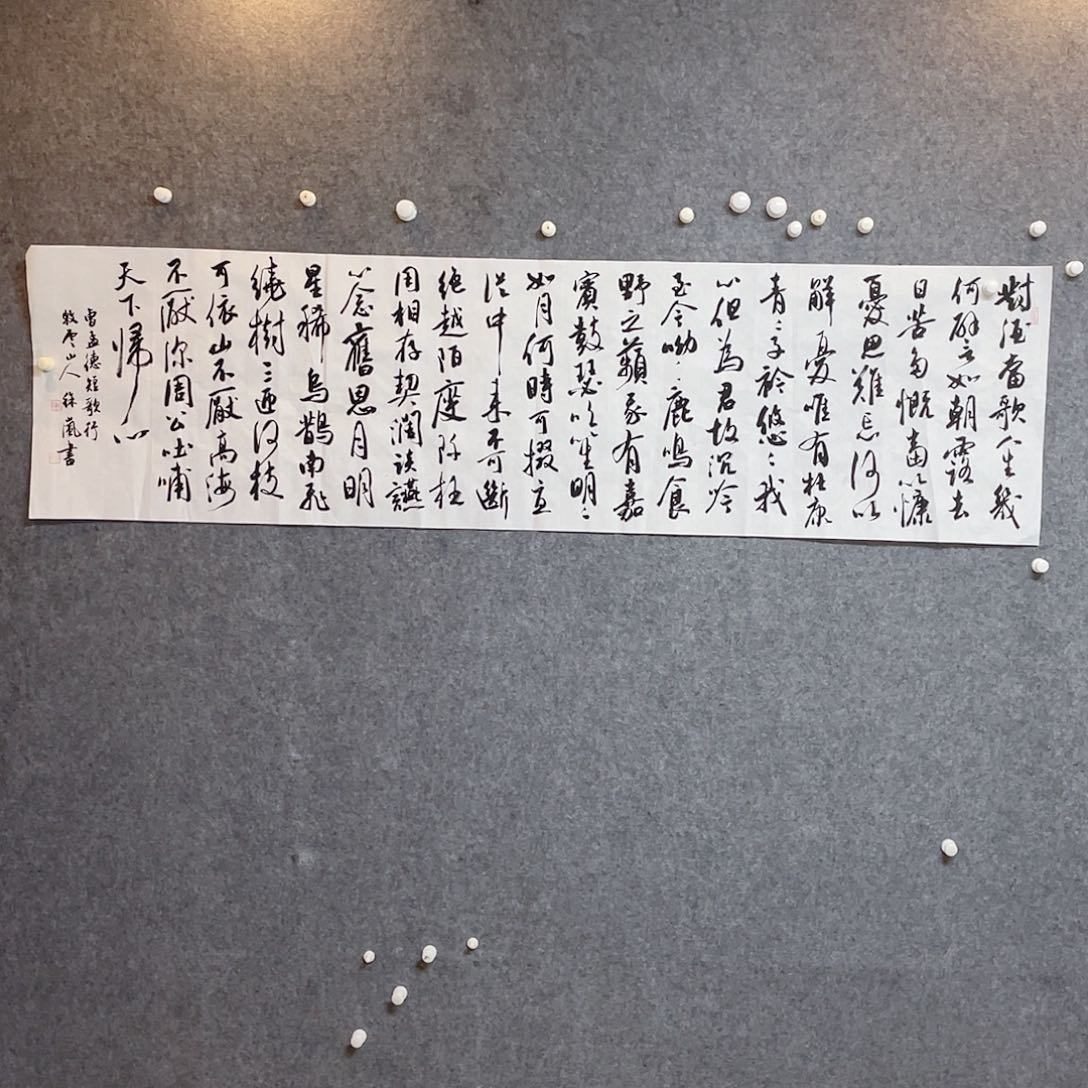 對酒當歌人生幾
何譬如朝露去
日苦多慨當以慷
憂思難忘何以
解憂唯有杜康
青々子衿悠々我
心但為君故沉吟
至今呦々鹿鳴食
野之蘋我有嘉
賓鼓瑟吹笙明々
如月何時可掇憂
從中來不可斷
絕越陌度阡枉
用相存契闊談讌
心念舊恩月明
星稀烏鵲南飛
繞樹三匝何枝
可依山不厭高海
不厭深周公吐哺
天下歸心
曹孟德短歌行
牧雲山人 徐嵐書